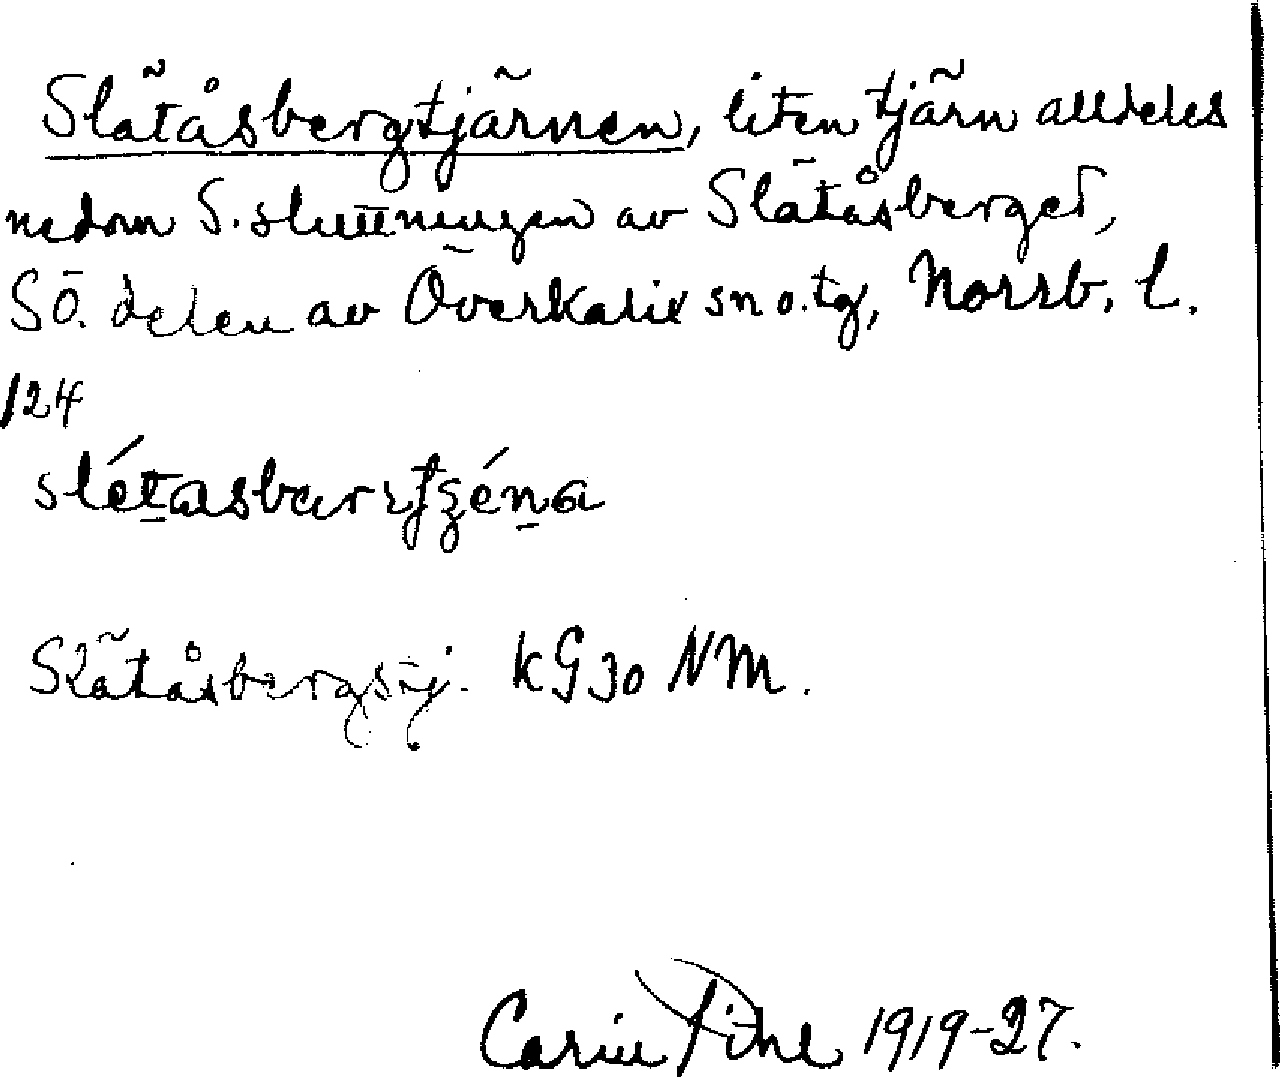 Slätåsbergtjärnen, liten tjärn alldeles
nedom S. sluttningen av Slätåsberget,
SÖ. delen av Överkalix sn o. tg, Norrb. l.
124
Slätåsbergstj. KG 30 NM.
Carin Pihl 1919-27.